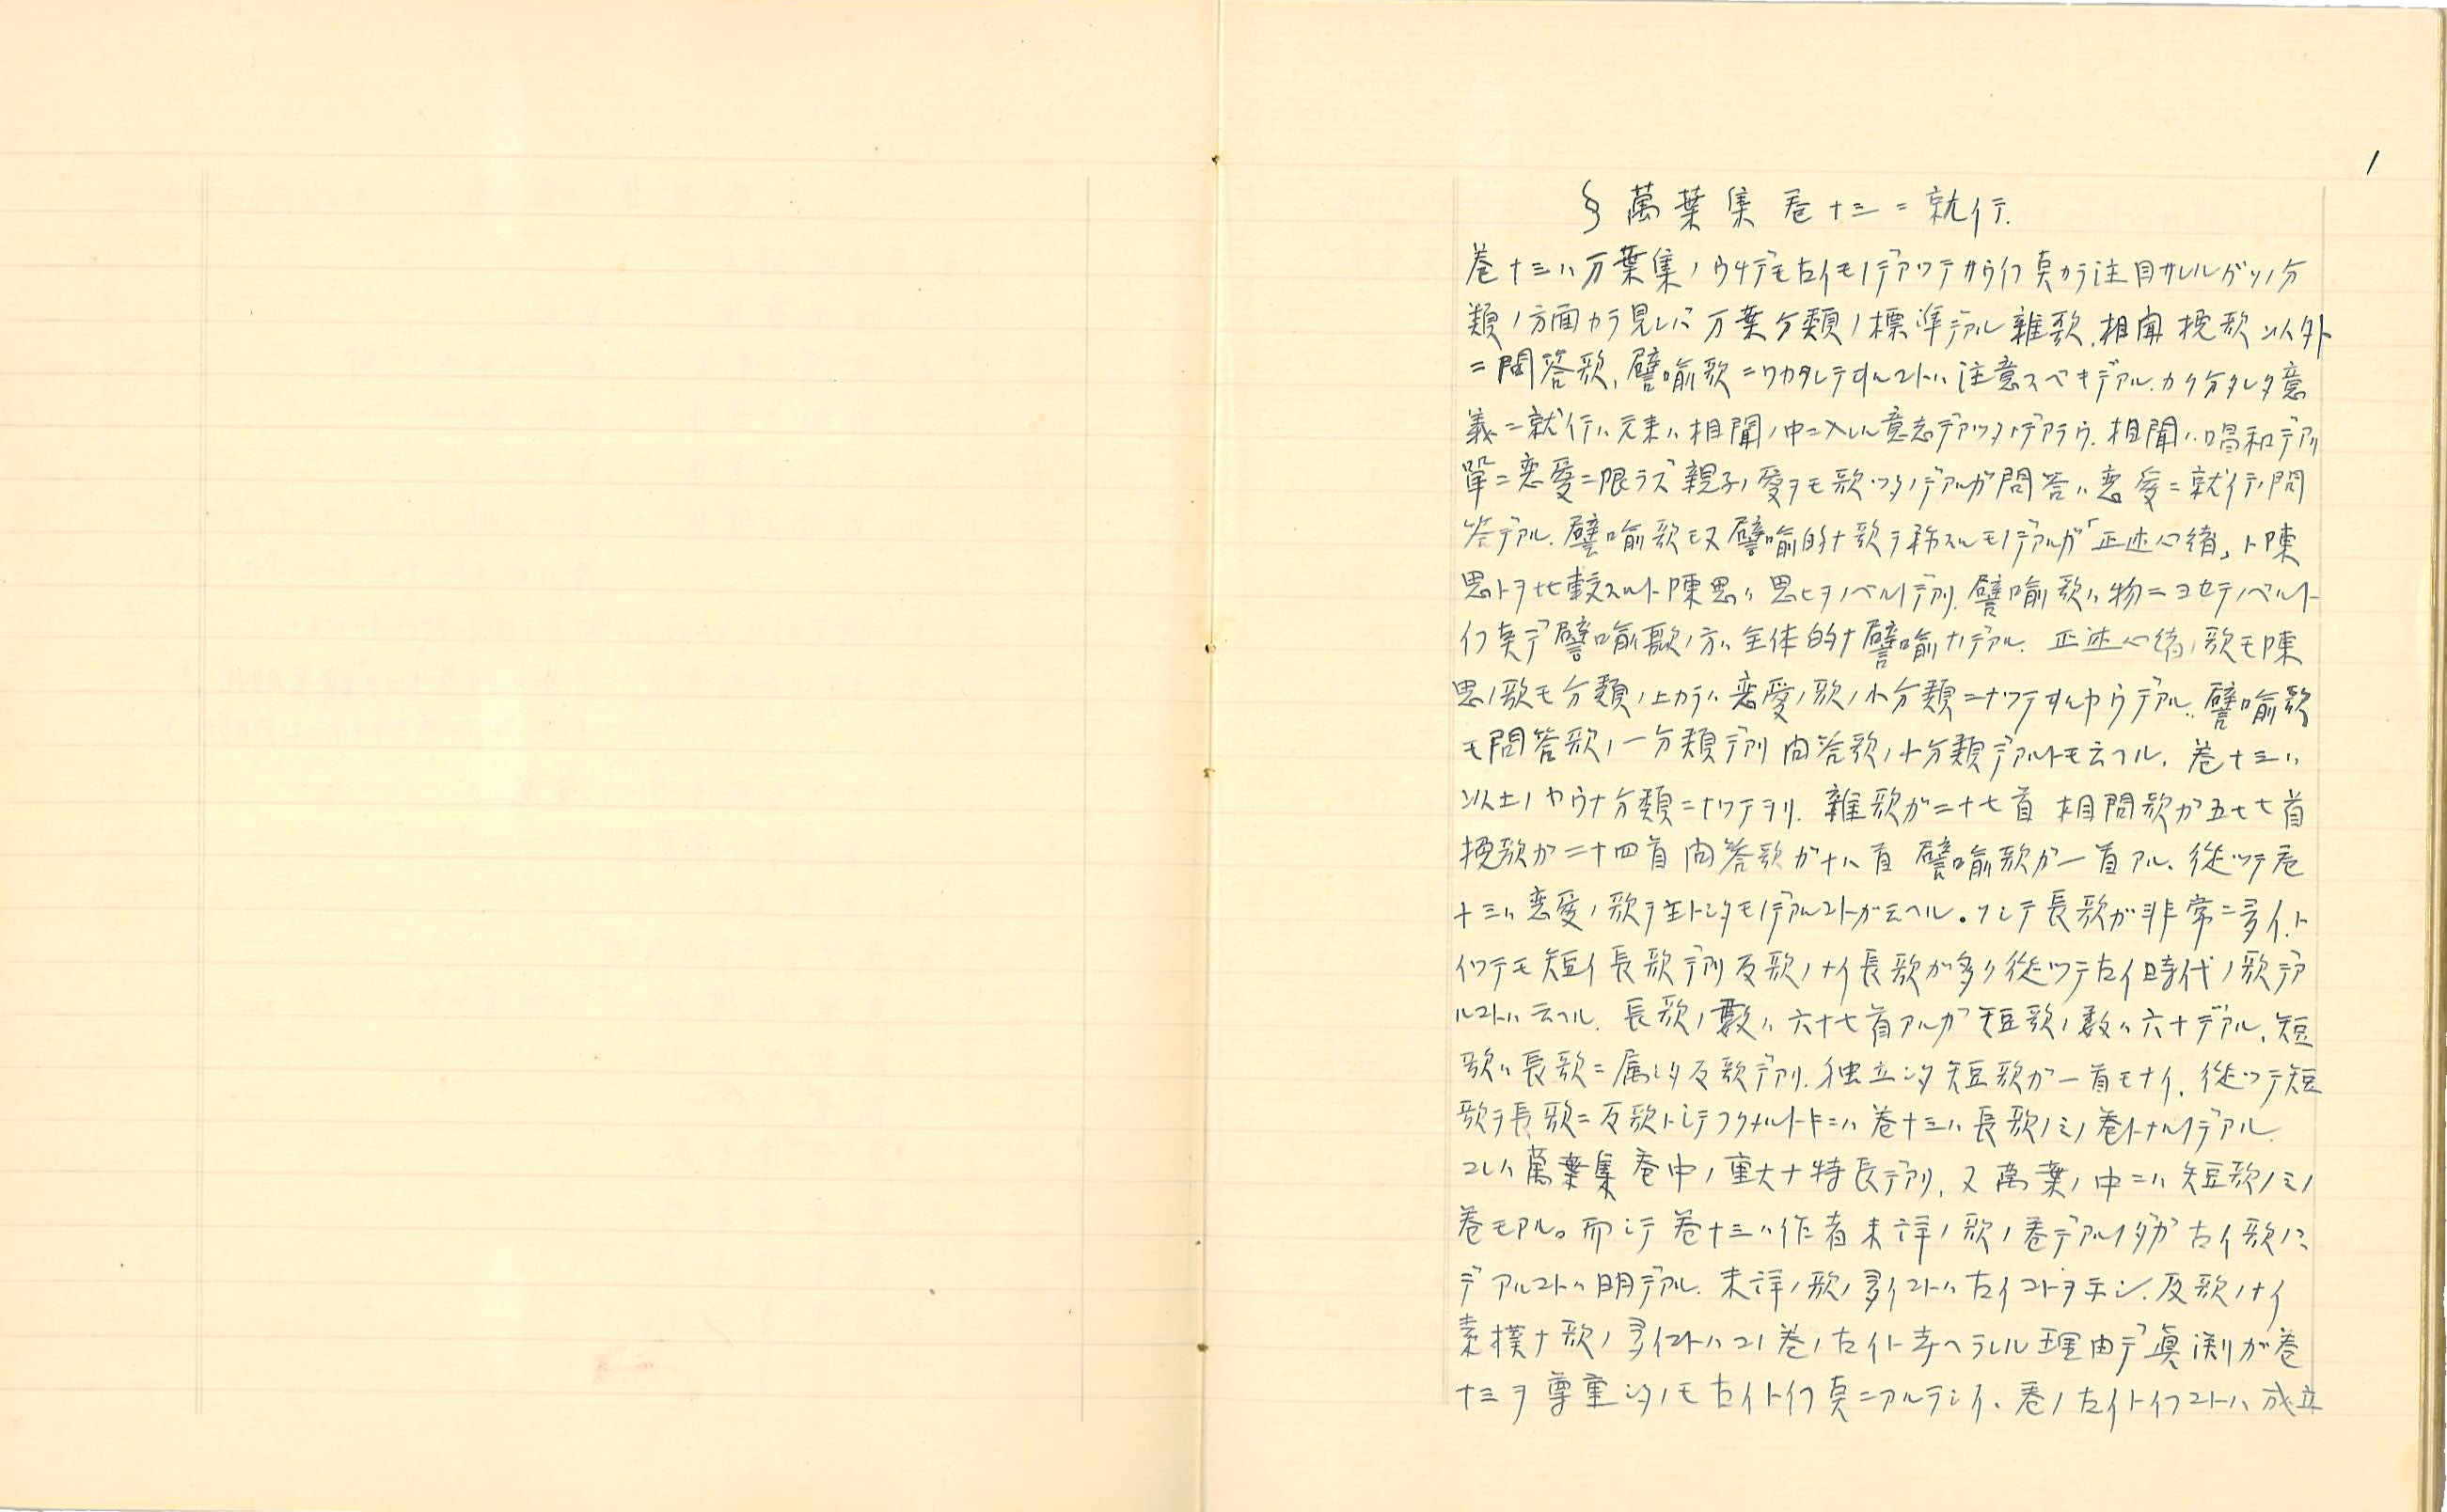 1
§ 萬葉集巻十三ニ就イテ.
巻十三ハ万葉集ノウチデモ古イモノデアツテカウイフ点カラ注目サレルガソノ分
類ノ方面カラ見レバ万葉分類ノ標準デアル雑歌.相聞 挽歌以外
ニ問答歌、譬喩歌ニワカタレテヰルコトハ注意スベキデアル.カク分タレタ意
義ニ就イテハ元来ハ相聞ノ中ニ入レル意志デアツタノデアラウ.相聞ハ唱和デアリ
單ニ恋愛ニ限ラズ親子ノ愛ヲモ歌ツタノデアルガ問答ハ恋愛ニ就イテノ問
答デアル.譬喩歌モ又譬喩的ナ歌ヲ称スルモノデアルガ「正述心緒」ト陳
思トヲ比較スルト陳思ハ思ヒヲノベルノデアリ.譬喩歌ハ物ニヨセテノベルト
イフ点デ譬喩歌ノ方ハ全体的ナ譬喩ナノデアル.正述心緒ノ歌モ陳
思ノ歌モ分類ノ上カラハ恋愛ノ歌ノ小分類ニナツテヰルヤウデアル.譬喩歌
モ問答歌ノ一分類デアリ問答歌ノ小分類デアルトモ云ヘル.巻十三ハ
以上ノヤウナ分類ニナツテヲリ.雑歌ガ二十七首 相聞歌ガ五十七首
挽歌ガ二十四首問答歌ガ十八首 譬喩歌ガ一首アル、従ツテ巻
十三ハ恋愛ノ歌ヲ主トシタモノデアルコトガ云ヘル.ソシテ長歌ガ非常ニ多イ.ト
イツテモ短イ長歌デアリ反歌ノナイ長歌ガ多ク従ツテ古イ時代ノ歌デア
ルコトハ云ヘル.長歌ノ數ハ六十七首アルガ短歌ノ数ハ六十デアル.短
歌ハ長歌ニ属シタ反歌デアリ.独立シタ短歌ガ一首モナイ.従ツテ短
歌ヲ長歌ニ反歌トシテフクメルトキニハ巻十三ハ長歌ノミノ巻トナルノデアル.
コレハ萬葉集巻中ノ重大ナ特長デアリ.又萬葉ノ中ニハ短歌ノミノ
巻モアル。而シテ巻十三ハ作者未詳ノ歌ノ巻デアルノダガ古イ歌ノミ
デアルコトハ明デアル.未詳ノ歌ノ多イコトハ古イコトヲ示シ.反歌ノナイ
素樸ナ歌ノ多イコトハコノ巻ノ古イト考ヘラレル理由デ眞淵ガ巻
十三ヲ尊重シタノモ古イトイフ点ニアルラシイ、巻ノ古イトイフコトハ成立